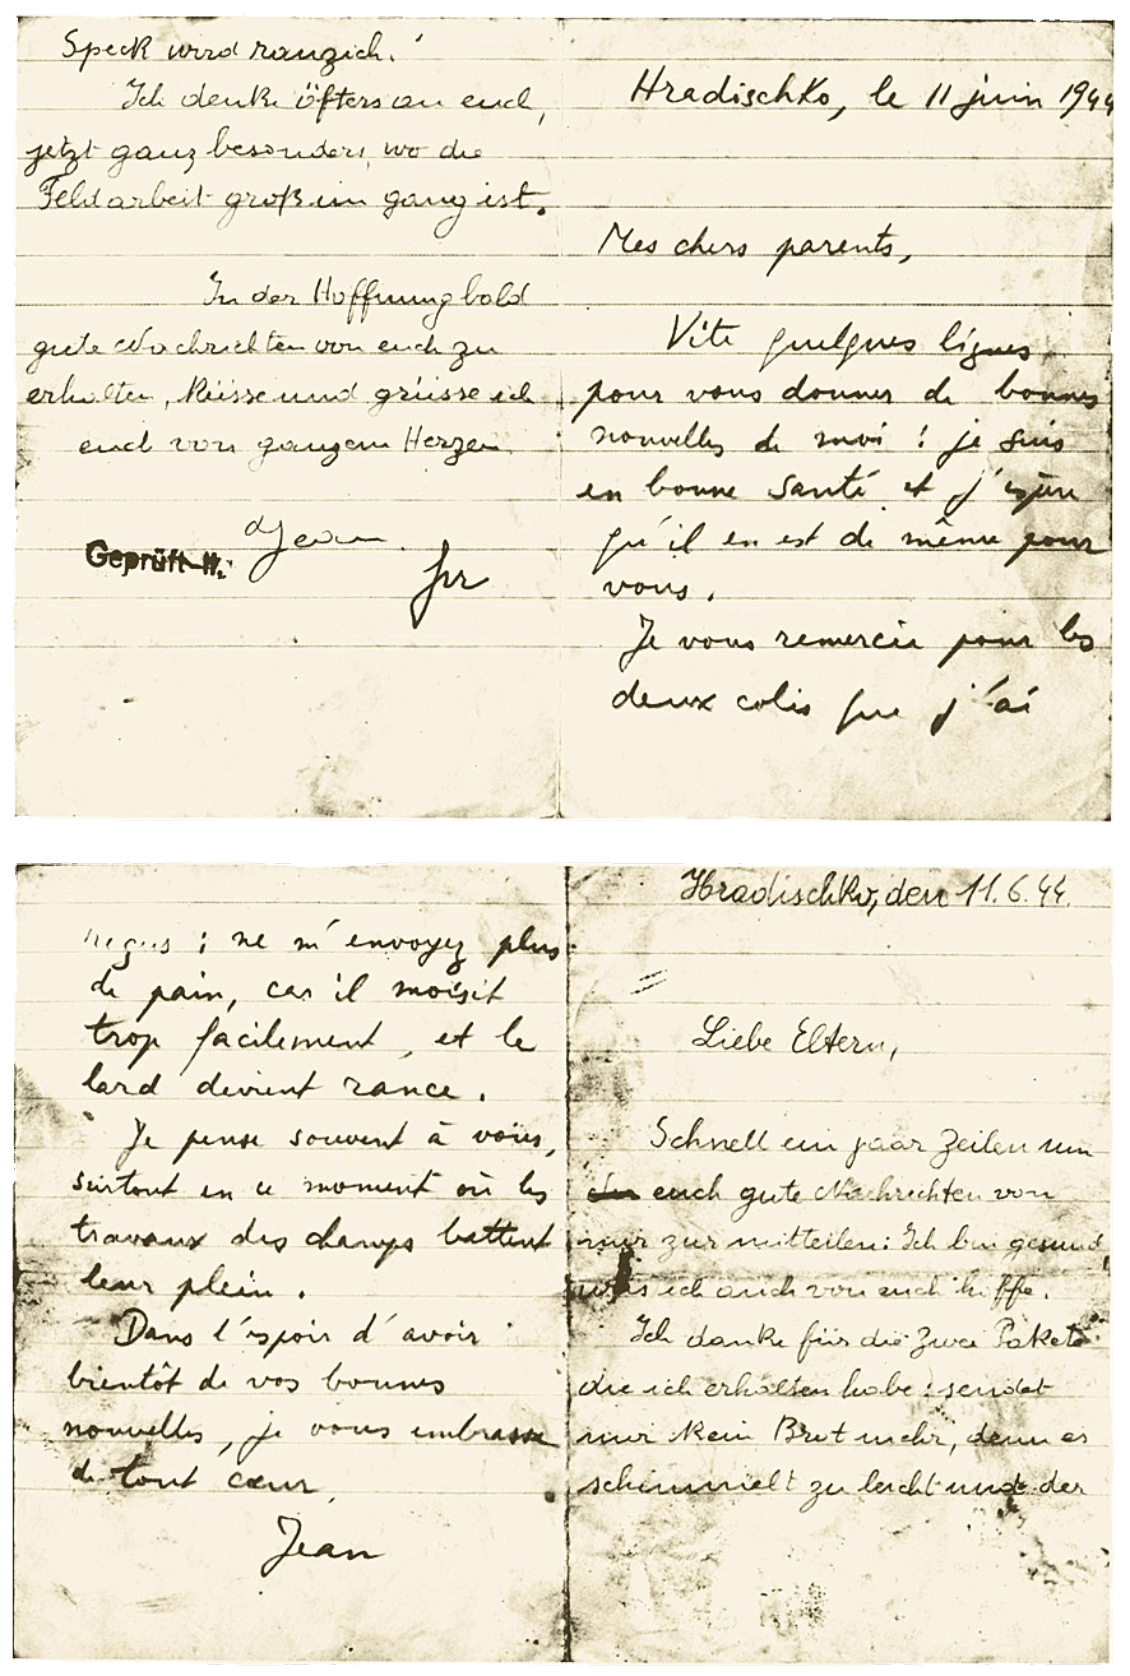 Speck wird ranzich!
Ich denke öfters an euch,
jetzt ganz besonders, wo die
Feldarbeit groß im gang ist.
In der Hoffnung bald
gute Nachrichten von euch zu
erhalten, küsse und grüsse ich
euch von ganzem Herzen
Jean
Geprüft
Hradischko, le 11 juin 1944
Mes chers parents,
Vite quelques lignes
pour vous donner de bonnes
nouvelles de moi : je suis
en bonne santé et j'espère
qu'il en est de même pour
vous.
Je vous remercie pour les
deux colis que j'ai
reçus ; ne m'envoyez plus
de pain, car il moisit
trop facilement, et le
lard devient rance.
Je pense souvent à vous,
surtout en ce moment où les
travaux des champs battent
leur plein.
Dans l'espoir d'avoir
bientôt de vos bonnes
nouvelles, je vous embrasse
de tout cœur.
Jean
Hradischko, den 11.6.44.
Liebe Eltern,
Schnell ein paar Zeilen um
euch gute Nachrichten von
mir zur mitteilen: Ich bin gesund,
was ich auch von euch hoffe.
Ich danke für die zwei Pakete
die ich erhalten habe: sendet
mir kein Brot mehr, denn es
schimmelt zu leicht und der